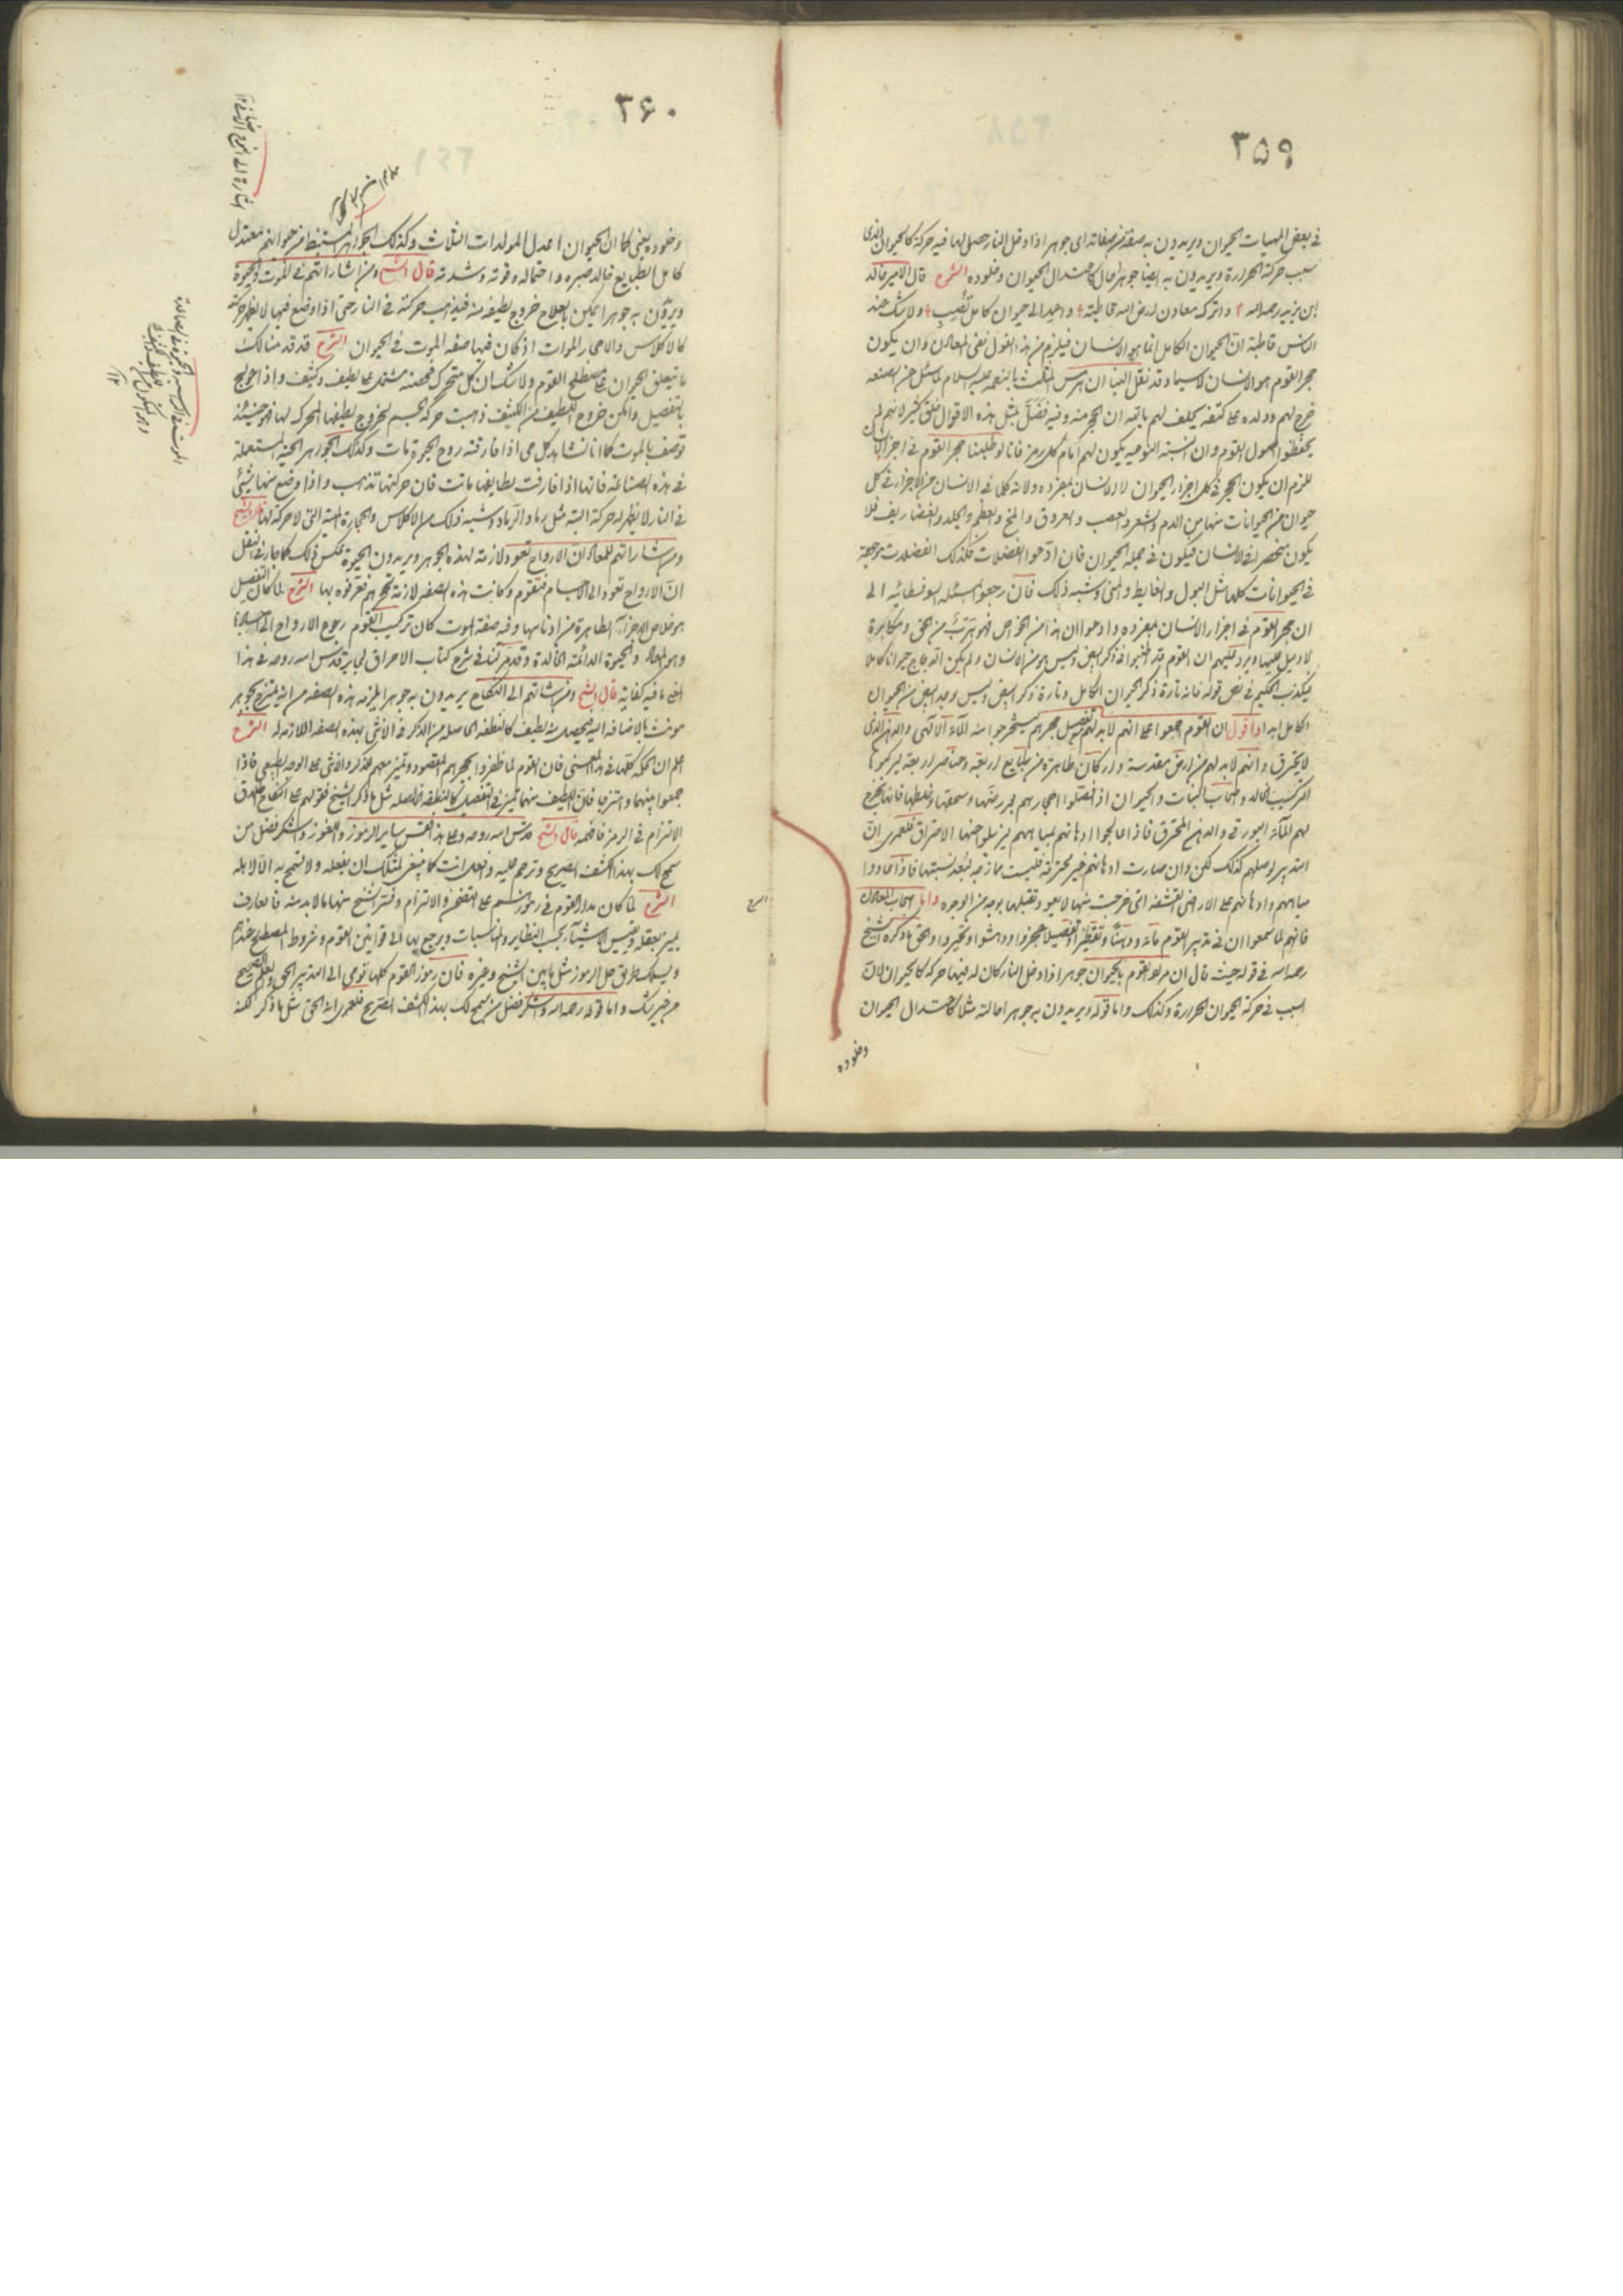 ٣۵٩
في بعض المهيات الحيوان ويريدون به صفة من صفاته اى جوهر اذا دخل النار حصل لها فيه حركة كالحيوان الذى
سبب حركة الحرارة ويريدون به ايضا جوهر اماله كاعتدال الحيوان وخلوده الشرح قال الامير خالد
ابن يزيد رحمه الله واترك معادن لارض الله قاطبته واعمد الى حيوان كامل تُصِيب ولا شك عند
الناس قاطبة انّ الحيوان الكامل انما هو الانسان فيلزم من هذا القول نفى المعادن وان يكون
حجر القوم هو الانسان لا سيما وقد نقل الينا ان هرمس المثلث بالنعمه عليه السلام لما سئل عن الصنعه
خرج لهم وولده على كتفه يحلف لهم باﷲ ان الحجر منه وفيه فَضَلَّ بمثل هذه الاقوال خلق كثير لانهم لم
يحفظوا اصول القوم وان النسبة النوعيه يكون لهم امام كل رمز فانا لو طلبنا حجر القوم في اجزا الانسان
للزم ان يكون الحجر في كل اجزاء الحيوان لا الانسان بمفرده ولانه كلما في الانسان من الاجزاء في كل
حيوان من الحيوانات منها من الدم والشعر والعصب والعروق والمخ والعظم والجلد والغضاريف فلا
يكون منحصر في الانسان فيكون في جملة الحيوان فان ادّعوا الفضلات فكذلك الفضلات موجعة
في الحيوانات كلها مثل البول والغايط والمنى وشبه ذلك فان رجعوا لمسئله السوفسطائيه الى
ان حجر القوم في اجزاء الانسان بمفرده وادعوا ان هذا من الخواص فهو تبرّئ من الحق ومكابرة
لا دليل عليها ويرد عليهم ان القوم قد اطنبوا في ذكر البيض وليس هو من الانسان ولم يكن الدجاج حيوانا كاملا
فيكذب الحكيم في نص قوله فانه تارة ذكر الحيوان الكامل وتارة ذكر البيض وليس وجد البيض من الحيوان
الكامل ابدا واقول ان القوم اجمعوا على انهم لابد لهم من تفصيل حجرهم يستخرجوا منه المآء الالهى والدهن الذى
لا يحترق وانهم لابد لهم من ارض مقدسة واركان طاهرة من طبايع اربعة وعناصر اربعة ليركبوها
التركيب الخالد واصحاب النبات والحيوان اذ فصّلوا احجارهم بمررضها وسمعتها وغلظها فانها يخرج
لهم المآء البورقى والدهن المحترق فاذا عالجوا ادهانهم بمياههم ليزيلوا عنها الاحتراق فلعمرى انّ
التدبير يوصلهم كذلك لكن وان صارت ادهانهم غير محترقة فليست ممازجه لبُعد نسبتها فاذا عادوا
مياههم وادهانهم على الارض القشفه التى خرجت منها لا تعود وتقبلها بوجه من الوجوه واما اصحاب المعادن
فانهم لما سمعوا ان في تدبير القوم ماء ودهنًا وتقطيرا وتفصيلا عجزوا ودهشوا وتحيروا والحق ما ذكره الشيخ
رحمه الله في قوله حيث قال ان مراد القوم بالحيوان جوهر اذا دخل النار كان له فيها حركه كالحيوان لان
السبب في حركة الحيوان الحرارة وكذلك واما قوله ويريدون به جوهرا ماله مثلا كاعتدال الحيوان
وخلوده
٣۶٠
وخلوده يعنى كما ان الحيوان اعدل المولدات الثلاث وكذلك الجواهر المستنبطة من حيوانهم معتدل
كامل الطبايع خالد صبره واحتماله وقوته وشدته قال الشيخ ومن اشاراتهم في الموت والحيوة
ويريدون به جوهرا يمكن بالعلاج خروج لطيفه منه فيذهب حركته في النار حتى اذا وضع فيها لا يظهر حركة
كالاكلاس والاحجار الموات اذ كان فيها صفة الموت في الحيوان الشرح قد قدمنا لك
ما يتعلق الحيوان على مصطلح القوم ولا شك ان كل متحرك فحصته مشتمل على لطيف وكثيف واذا عولج
بالتفصيل وامكن خروج اللطيف من الكثيف ذهبت حركة الجسم لخروج لطيفها المحركه لها فهو حينئذ
توصف بالموت كما انا نشاهد كل حى اذا فارقته روح الحيوة مات وكذلك الجواهر الحيّة المستعمله
في هذه الصناعة فانها اذا فارقت لطايفها ماتت فان حركتها تذهب واذا وضع منها شئ
في النار لا يظهر له حركة البتة مثل رماد الرماد وشبه ذلك من الاكلاس والحجارة الميتة التى لا حركة لها قال الشيخ
ومن اشاراتهم للمعاد انّ الارواح تعود لازمة لهذه الجوهر ويريدون الحيوة بعكس ذلك كما جاء في النقل
انّ الارواح تعود الى الاجسام فتقوم وكانت هذه الصفه لازمة لحجرهم فعرفوه بها الشرح لما كان التفصيل
هو خلاص الاجزاء الطاهرة من ادناسها وفيه صفة الموت كان تركيب القوم رجوع الارواح الى اجسادها
وهو المعاد والحيوة الدائمة الخالدة وقد مر لنا في شرح كتاب الاحراق لجابر قدس الله روحه في هذا
المعنى ما فيه كفاية قال الشيخ ومن اشاراتهم الى النكاح يريدون به جوهر المزمه هذه الصفه من انه يمتزج بجوهر
مونث بالاضافه اليه فيحصل منه لطيف كالنطفه الحاصله من الذكر في الانثى بهذه الصفه اللازمه له الشرح
اعلم ان الحكمه كلها في هذا المعنى فان القوم لما ظفروا بحجرهم المقصود وتميز معهم الذكر والانثى على الوجه الطبيعى فاذا
جمعوا بينهما وامتزجا فان اللطيف منهما تميز في التفصيل كالنطفه الحاصله مثل ما ذكر الشيخ فقولهم على النكاح بطريق
الالتزام في الرمز فافهمه قال الشيخ قدس الله روحه وعلى هذا فقس ساير الرموز واللغوز واشكر فضل من
سمح لك بهذا الكشف الصريح وترحم عليه وافعل انت كما ينبغى لمثلك ان يفعله ولا تسمح به الا لاهله
الشرح لما كان مدار القوم في رموزهم على التضمن والالتزام وفسّر الشيخ منها ما لابد منه فالعارف
يميز بعقله ويقيس الاشيآء بحسب النظاير والمناسبات ويرجع بها الى قوانين القوم وشروط المصطلح عندهم
ويسلك طريق حل الرموز مثل ما بين الشيخ وغيره فان رموز القوم كلها تومى الى التدبير الحق والعلم الصحيح
من غير شك واما قوله رحمه الله واشكر فضل من سمح لك بهذا الكشف الصريح فلعمرى انه الحق مثل ما ذكر لكنه